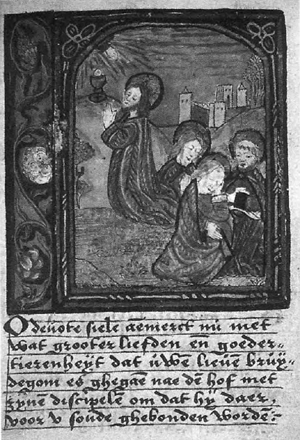 O deuote siele aemerct nu met
wat grooter liefden en goeder-
tierenheyt dat uwen lieuē bruy-
degom es ghegaen nae dē hof met
zyne discipelē om dat hy daer,
voor v soude ghebonden wordē: